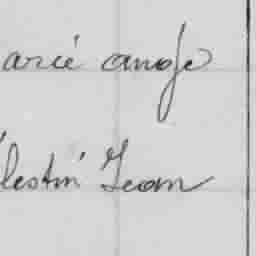 arie ange
lestin Jean